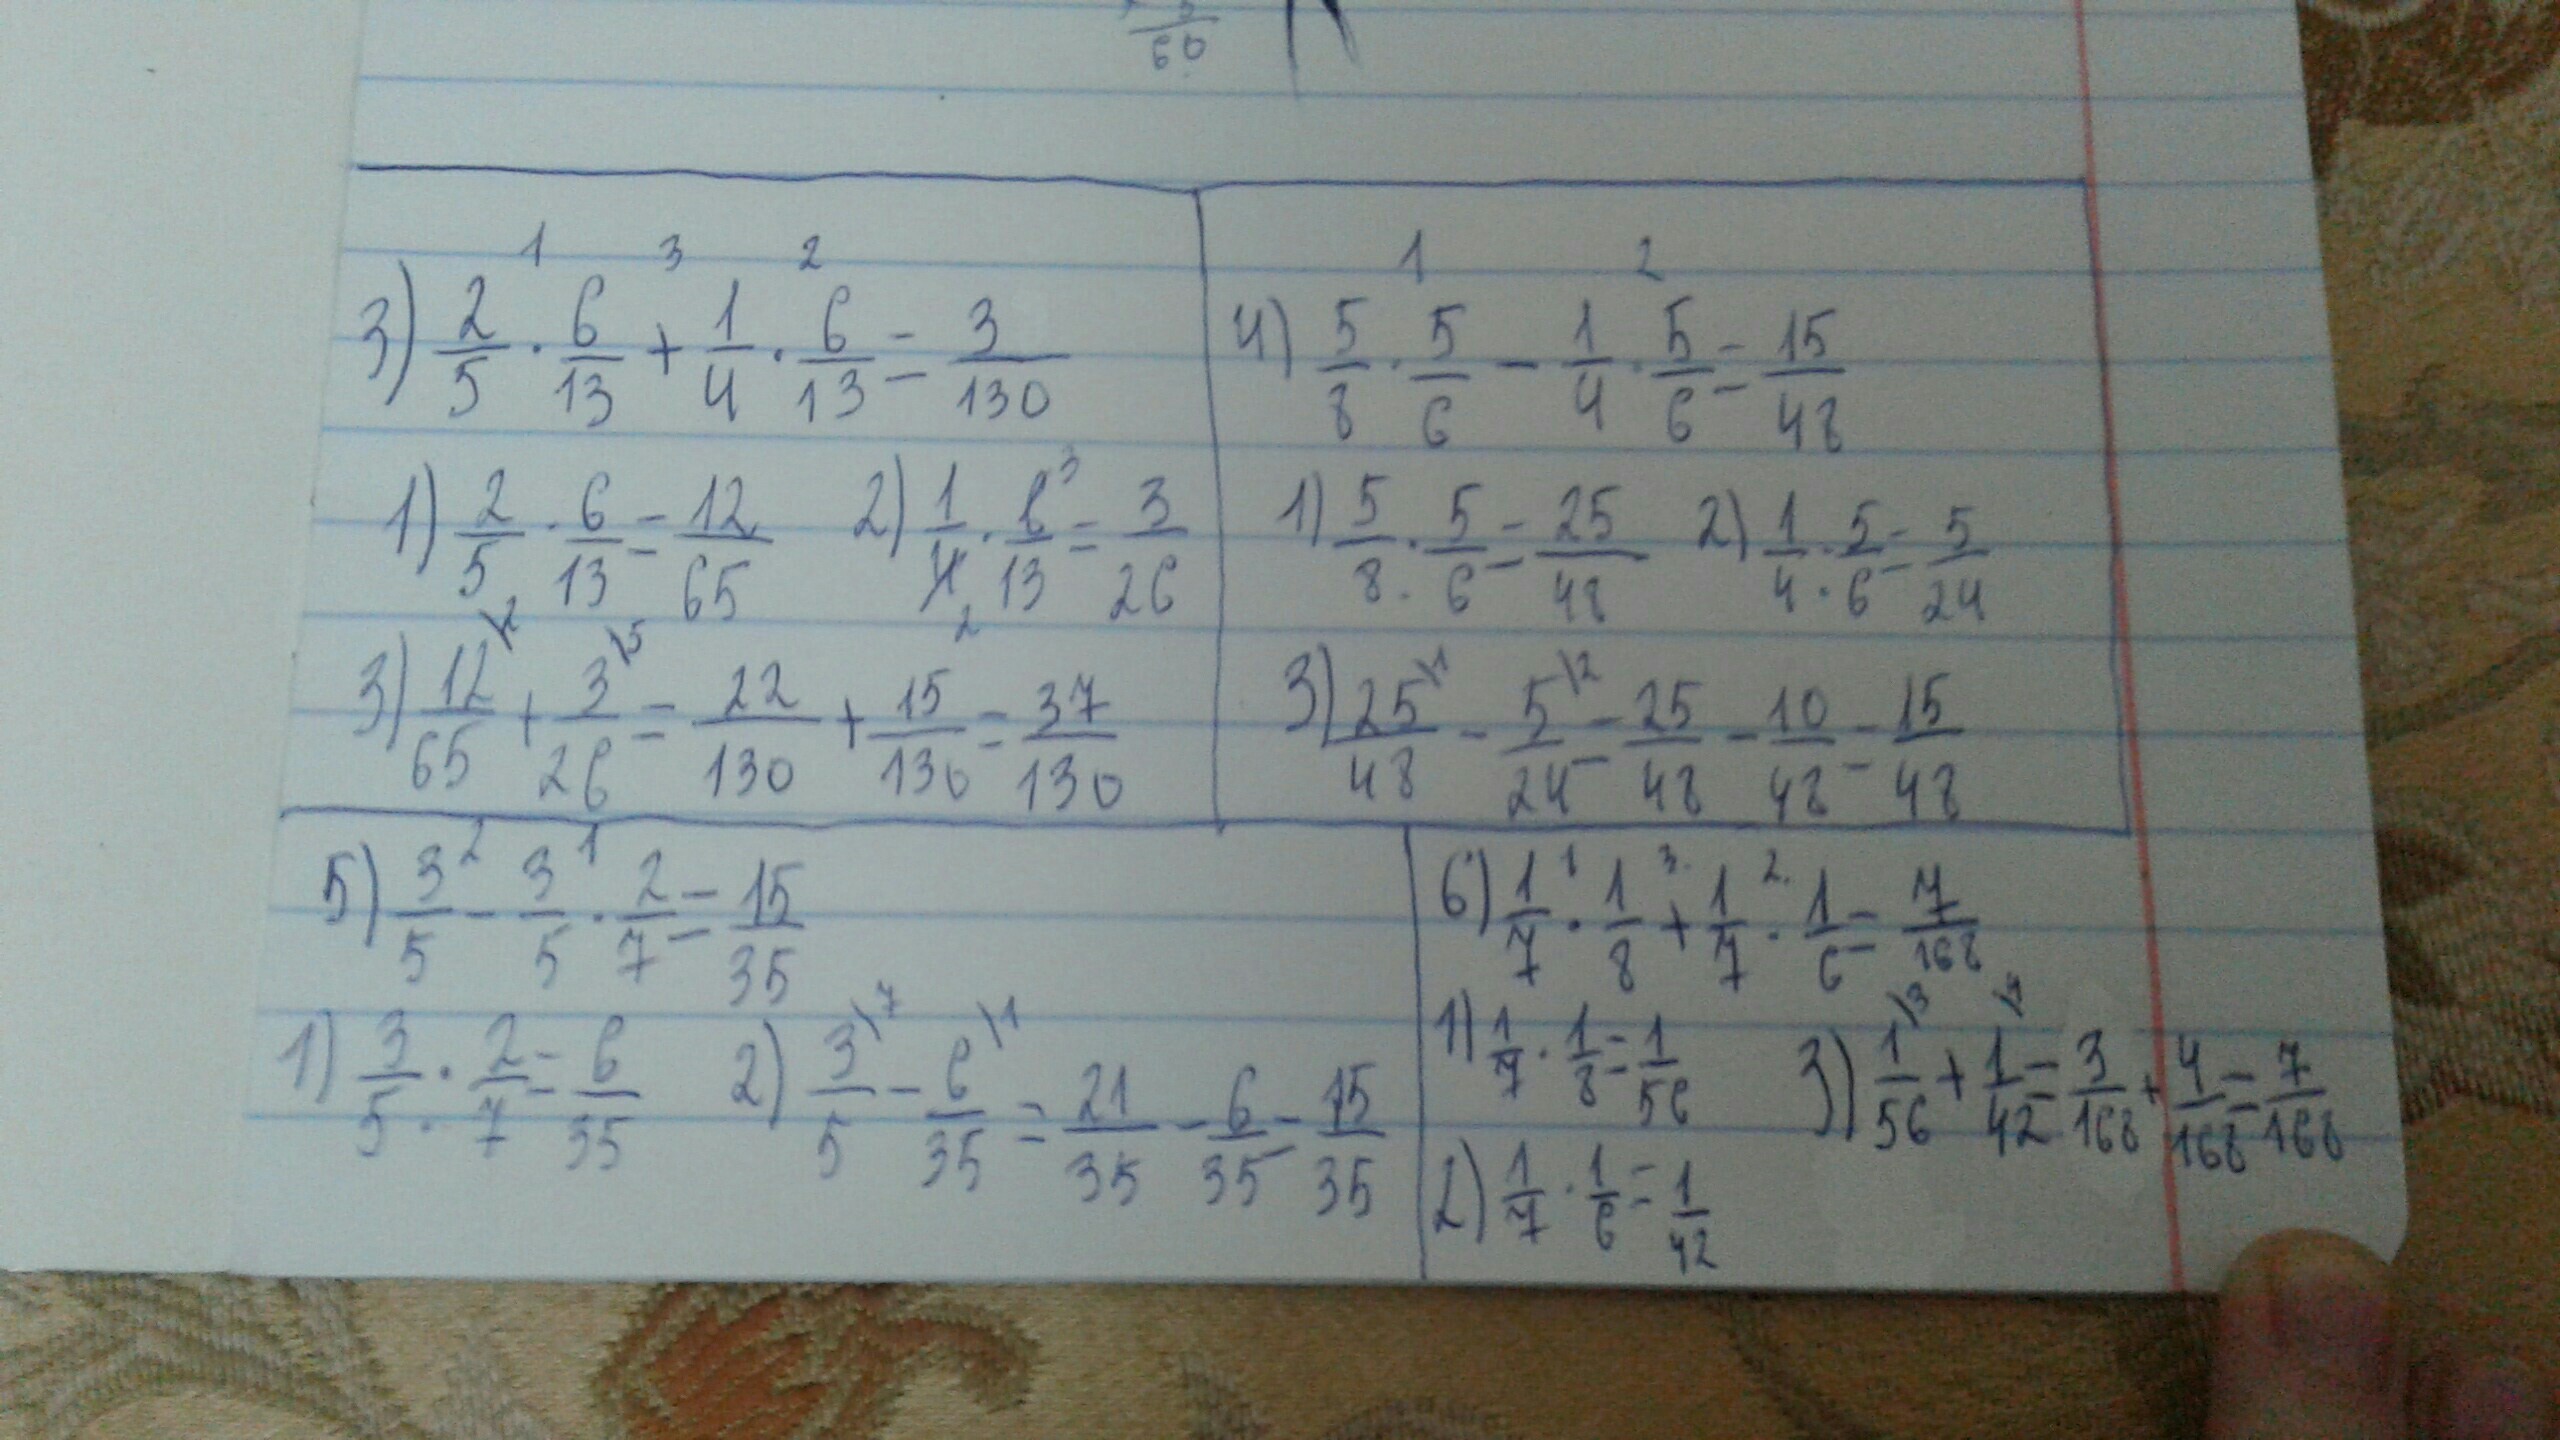 60
1 3 2
3) 2/5 · 6/13 + 1/4 · 6/13 = 3/130
1) 2/5 · 6/13 = 12/65 2) 1/4 · 6/13 = 3/26
3 2
3) 12/65 \2 + 3/26 \5 = 22/130 + 15/130 = 37/130
1 2
4) 5/8 · 5/6 - 1/4 · 5/6 = 15/48
1) 5/8 · 5/6 = 25/48 2) 1/4 · 5/6 = 5/24
3) 25/48 \1 - 5/24 \2 = 25/48 - 10/48 = 15/48
2 1
5) 3/5 - 3/5 · 2/7 = 15/35
1) 3/5 · 2/7 = 6/35 2) 3/5 \7 - 6/35 \1 = 21/35 - 6/35 = 15/35
1 3. 2.
6) 1/7 · 1/8 + 1/7 · 1/6 = 7/168
1) 1/7 · 1/8 = 1/56 3) 1/56 \3 + 1/42 \4 = 3/168 + 4/168 = 7/168
2) 1/7 · 1/6 = 1/42